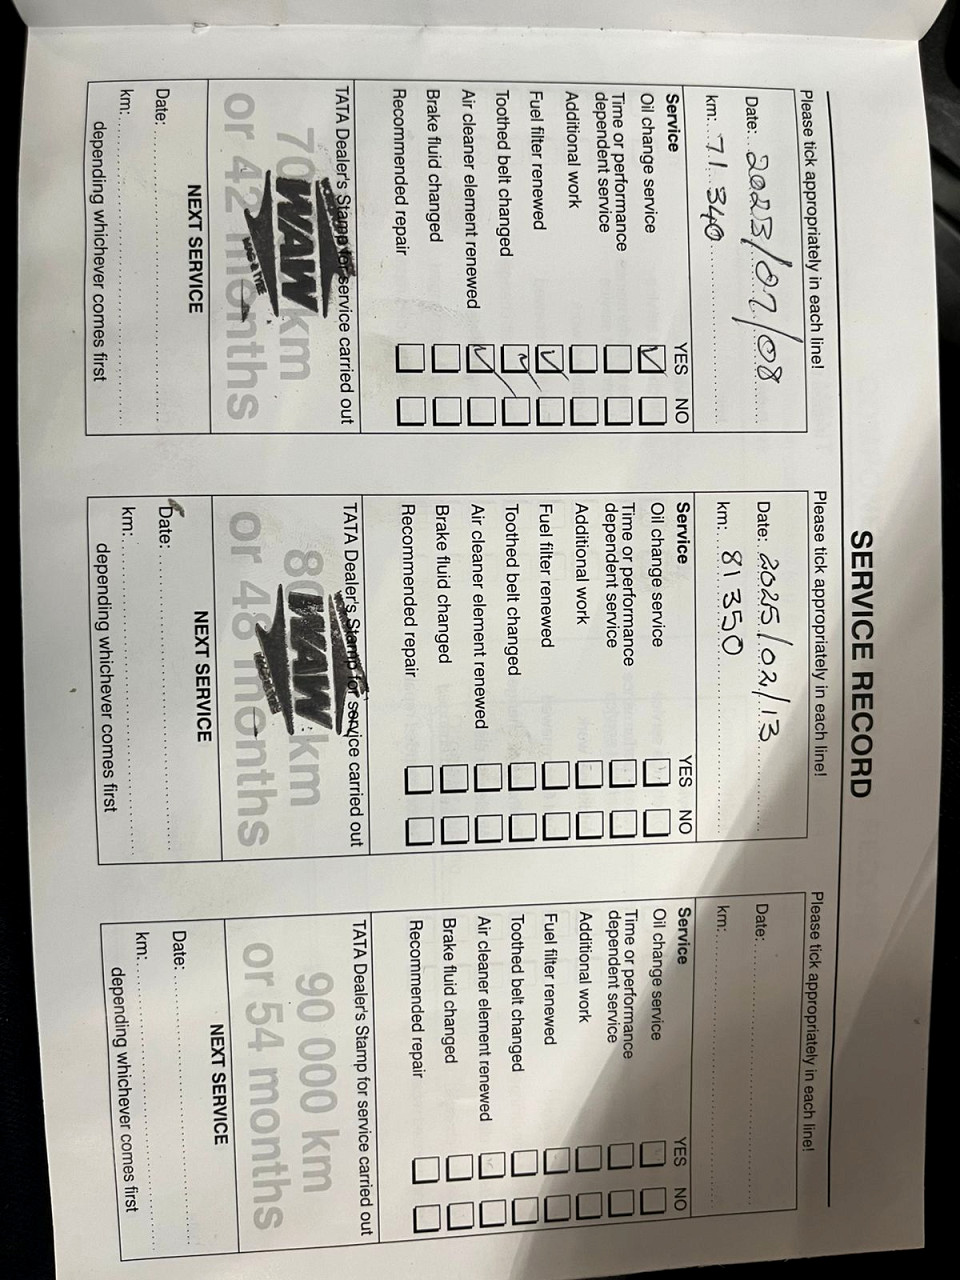 SERVICE RECORD
Please tick appropriately in each line!
Date: 2023/07/08
km: 71 340
Service YES NO
Oil change service
Time or performance
dependent service
Additional work
Fuel filter renewed
Toothed belt changed
Air cleaner element renewed
Brake fluid changed
Recommended repair
TATA Dealer's Stamp for service carried out
70 km
WAW
or 42 months
NEXT SERVICE
Date:
km:
depending whichever comes first
Please tick appropriately in each line!
Date: 2025/02/13
km: 81 350
Service YES NO
Oil change service
Time or performance
dependent service
Additional work
Fuel filter renewed
Toothed belt changed
Air cleaner element renewed
Brake fluid changed
Recommended repair
TATA Dealer's Stamp for service carried out
80 km
WAW
or 48 months
NEXT SERVICE
Date:
km:
depending whichever comes first
Please tick appropriately in each line!
Date:
km:
Service YES NO
Oil change service
Time or performance
dependent service
Additional work
Fuel filter renewed
Toothed belt changed
Air cleaner element renewed
Brake fluid changed
Recommended repair
TATA Dealer's Stamp for service carried out
90 000 km
or 54 months
NEXT SERVICE
Date:
km:
depending whichever comes first